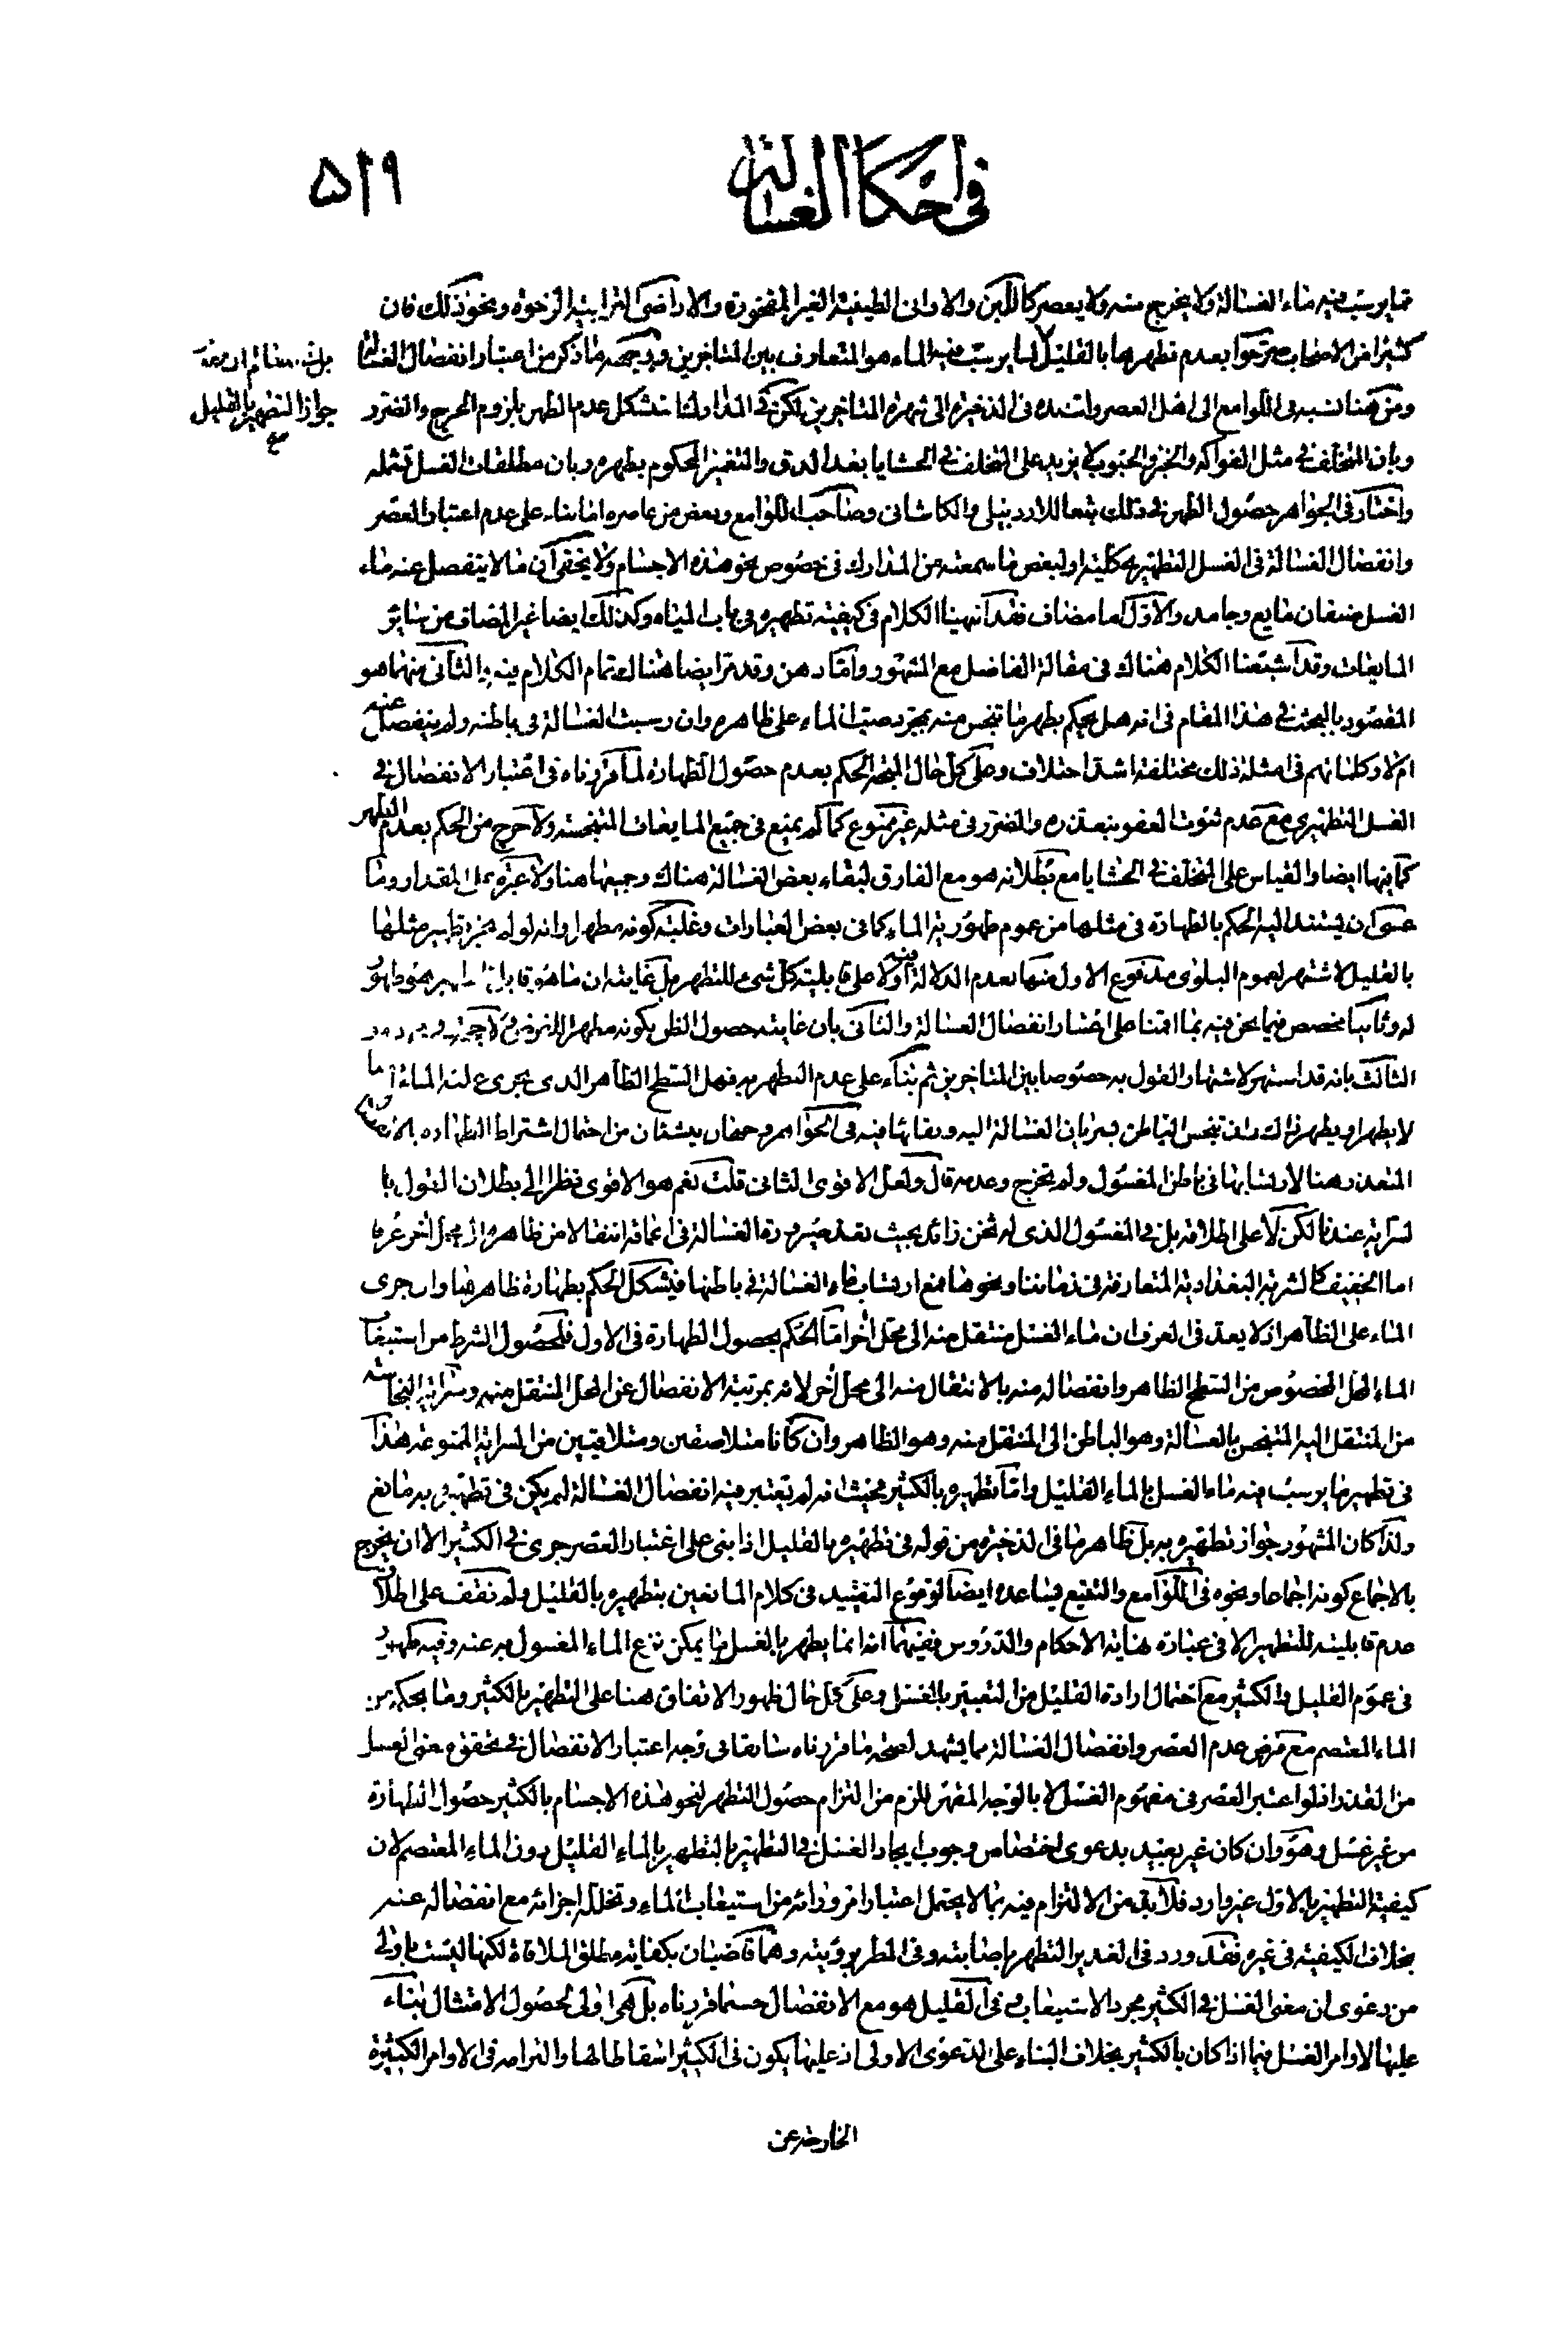 في احكام الغسالة
۵۱۹
مما يرسب فيه ماء الغسالة ولا يخرج منه ولا يعصر كاللبن والاواني الطينية الغير المفخورة والاراضي الترابية الرخوة ونحو ذلك فان
كثيرا من الاصحاب صرحوا بعدم تطهرها بالقليل لما يرسب فيه الماء هو المتعارف بين المتاخرين ووجهه ما ذكر من اعتبار انفصال الغسالة
جواز التطهير بالقليل
ومن هنا نسبه في اللوامع الى اهل العصر واسنده في الذخيرة الى شهرة المتاخرين لكن في المدارك استشكل عدم الطهر بلزوم الحرج والضرر
وبان المتخلف في مثل الفواكه والخبز والحبوب لا يزيد على المتخلف في الحشايا بعد الدق والتغميز المحكوم بطهره وبان مطلقات الغسل تشمله
واختار في الجواهر حصول الطهر في ذلك تبعا للاردبيلي والكاشاني وصاحب اللوامع وبعض من عاصره اما بناء على عدم اعتبار العصر
وانفصال الغسالة في الغسل التطهيري كلية او لبعض ما سمعته من المدارك في خصوص نحو هذه الاجسام ولا يخفى ان ما لا ينفصل عنه ماء
الغسل صنفان مايع وجامد والاول اما مضاف فقد انهينا الكلام في كيفية تطهيره في باب المياه وكذلك ايضا غير المضاف من ساير
المايعات وقد اشبعنا الكلام هناك في مقالة الفاضل مع المشهور واما دهن وقد مر ايضا هناك تمام الكلام فيه والثاني منهما هو
المقصود بالبحث في هذا المقام في انه هل يحكم بطهر ما تنجس منه بمجرد صب الماء على ظاهره وان رسبت الغسالة في باطنه ولم ينفصل عنه
ام لا وكلماتهم في امثلة ذلك مختلفة اشد اختلاف وعلى كل حال المتجه الحكم بعدم حصول الطهارة لما قررناه في اعتبار الانفصال في
الغسل التطهيري مع عدم ثبوت العفو بتعذره والضرر في مثله غير ممنوع كما لم يمنع في جميع المايعات المتنجسة ولا حرج من الحكم بعدم الطهر
كما فيها ايضا والقياس على المتخلف في الحشايا مع بطلانه هو مع الفارق لبقاء بعض الغسالة هناك وجميعها هنا ولا عبرة بملء المقدار وما
عسى ان يستند اليه الحكم بالطهارة في مثلها من عموم طهورية الماء كما في بعض العبارات وغلبة كونه مطهرا وانه لو لم يجز تطهير مثلها
بالقليل لاشتهر لعموم البلوى مدفوع الاول منها بعدم الدلالة فيه اولا على قابلية كل شيء للتطهر بل غايته ان ما هو قابل فهو طهور
له وثانيا مخصص فيما نحن فيه بما اقمنا على اعتبار انفصال الغسالة والثاني بان غايته حصول الظن بكونه مطهرا
الثالث بانه قد اشتهر لاشتهار القول به خصوصا بين المتاخرين ثم بناء على عدم التطهر به فهل السطح الظاهر الذي يجري عليه الماء
لا يطهر او يطهر ذلك وان تنجس الباطن بسريان الغسالة اليه وبقائها فيه في الجواهر وجهان ينشئان من احتمال اشتراط الطهارة
المتعذر هنا لارتسابها في باطن المغسول ولم تخرج وعدمه قال ولعل الاقوى الثاني قلت نعم هو الاقوى نظرا الى بطلان القول با
لسراية عندنا لكن لا على اطلاقه بل في المغسول الذي له ثخن زائد بحيث تعد صيرورة الغسالة في اعماقه انتقالا من ظاهره الى محل اخر عرفا
اما الخفيف كالشربة البغدادية المتعارفة في زماننا ونحوها مع ارتساب ماء الغسالة في باطنها فيشكل الحكم بطهارة ظاهرها وان جرى
الماء على الظاهر اذ لا يعد في العرف ان ماء الغسل منتقل منه الى محل اخر اما الحكم بحصول الطهارة في الاول فلحصول الشرط من استيعاب
الماء المحل المخصوص من السطح الظاهر وانفصاله منه بالانتقال منه الى محل اخر لانه بمرتبة الانفصال عن المحل المنتقل منه وسراية النجاسة
من المنتقل اليه المتنجس بالغسالة وهو الباطن الى المنتقل منه وهو الظاهر وان كانا متلاصقين ومتلاقيين من السراية الممنوعة هذا
في تطهير ما يرسب فيه ماء الغسل بالماء القليل واما تطهيره بالكثير فحيث انه لم يعتبر فيه انفصال الغسالة لم يكن في تطهيره به مانع
ولذا كان المشهور جواز تطهيره به بل ظاهر ما في الذخيرة من قوله في تطهيره بالقليل اذا بني على اعتبار العصر جرى في الكثير الا ان يخرج
بالاجماع كونه اجماعا ونحوه في اللوامع والتتبع يساعده ايضا لوقوع التقييد في كلام المانعين بتطهيره بالقليل ولم نقف على اطلاق
عدم قابليته للتطهير الا في عبارة نهاية الاحكام والدروس ففيهما انه انما يطهر بالغسل ما يمكن نزع الماء المغسول به عنه وفيه ظهور
في عموم القليل والكثير مع احتمال ارادة القليل من التعبير بالغسل وعلى كل حال ظهور الاتفاق هنا على التطهير بالكثير وما بحكمه من
الماء المعتصم مع فرض عدم العصر وانفصال الغسالة مما يشهد لصحة ما قررناه سابقا في وجه اعتبار الانفصال في تحقق معنى الغسل
من القذر اذ لو اعتبر العصر في مفهوم الغسل لا بالوجه المقرر للزم من التزام حصول التطهر لنحو هذه الاجسام بالكثير حصول الطهارة
من غير غسل وهو وان كان غير بعيد بدعوى اختصاص وجوب ايجاد الغسل في التطهير بالتطهير بالماء القليل دون الماء المعتصم لان
كيفية التطهير بالاول غير وارد فلا بد من الالتزام فيه بما لا يحتمل اعتبار امر ورائه من استيعاب الماء وتخلله اجزائه مع انفصاله عنه
بخلاف الكيفية في غيره فقد ورد في الغدير التطهر باصابته وفي المطر برؤيته وهما قاضيان بكفاية مطلق الملاقاة لكنها ليست باولى
من دعوى ان معنى الغسل في الكثير مجرد الاستيعاب وفي القليل هو مع الانفصال حسبما قررناه بل هي اولى لحصول الامتثال بناء
عليها لاوامر الغسل فيما اذا كان بالكثير بخلاف البناء على الدعوى الاولى اذ عليها يكون في الكثير اسقاطا لها والتزامه في الاوامر الكثيرة
الخارجة عن